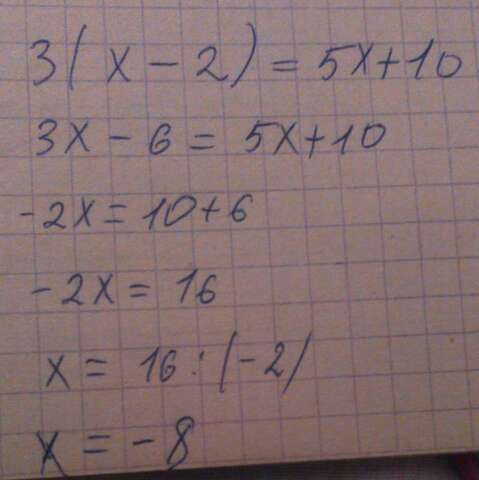 3(x-2)=5x+10
3x-6=5x+10
-2x=10+6
-2x=16
x=16:(-2)
x=-8